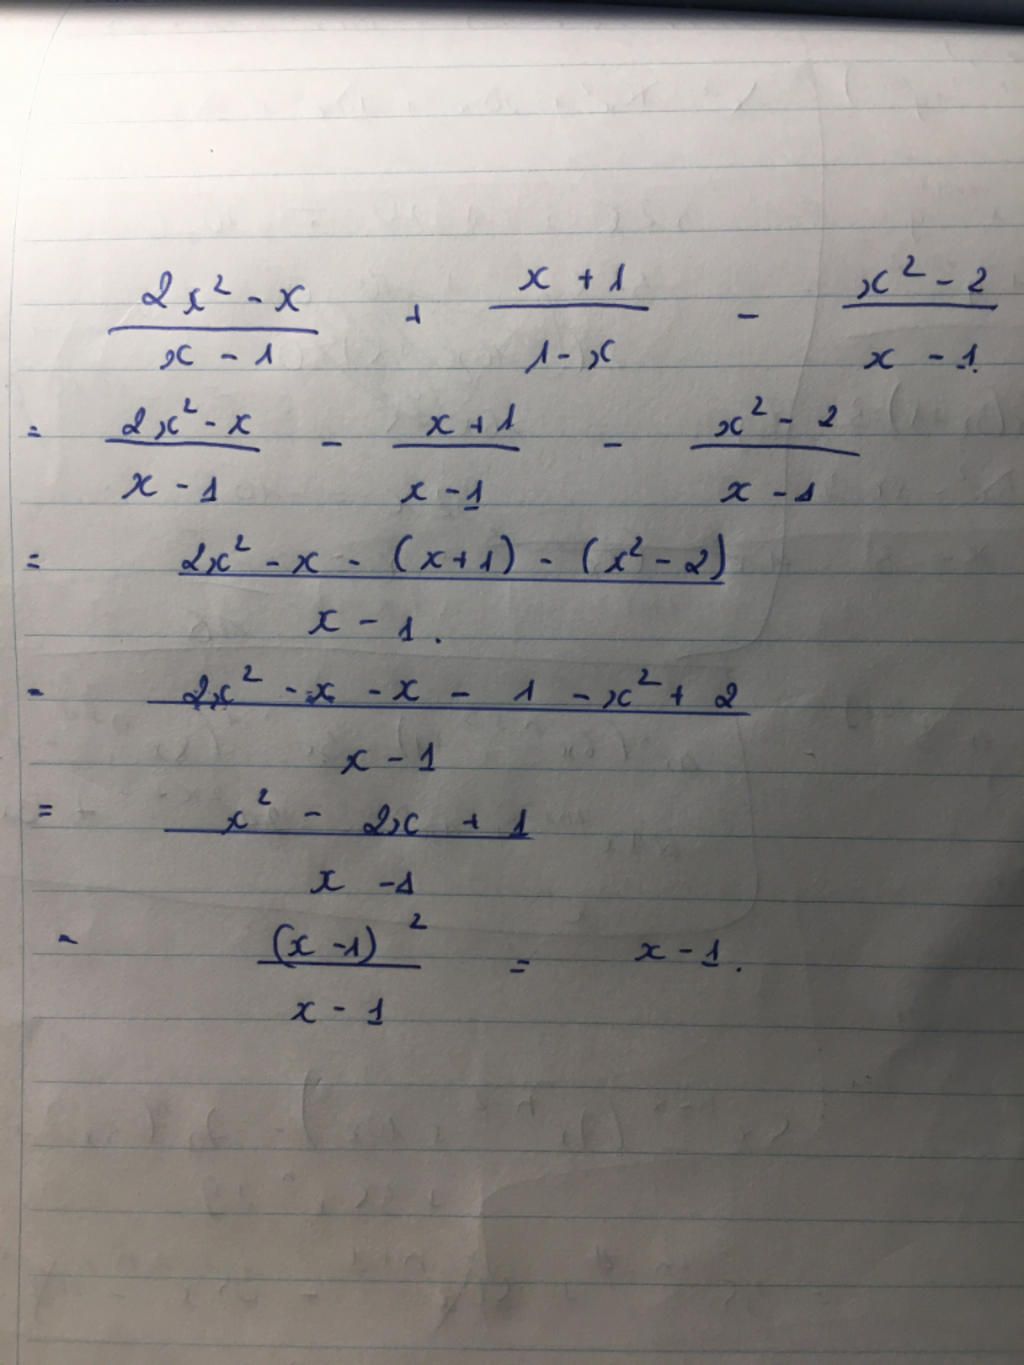 (2x² - x)/(x - 1) + (x + 1)/(1 - x) - (x² - 2)/(x - 1).
= (2x² - x)/(x - 1) - (x + 1)/(x - 1) - (x² - 2)/(x - 1)
= (2x² - x - (x + 1) - (x² - 2))/(x - 1).
= (2x² - x - x - 1 - x² + 2)/(x - 1)
= (x² - 2x + 1)/(x - 1)
= (x - 1)²/(x - 1) = x - 1.